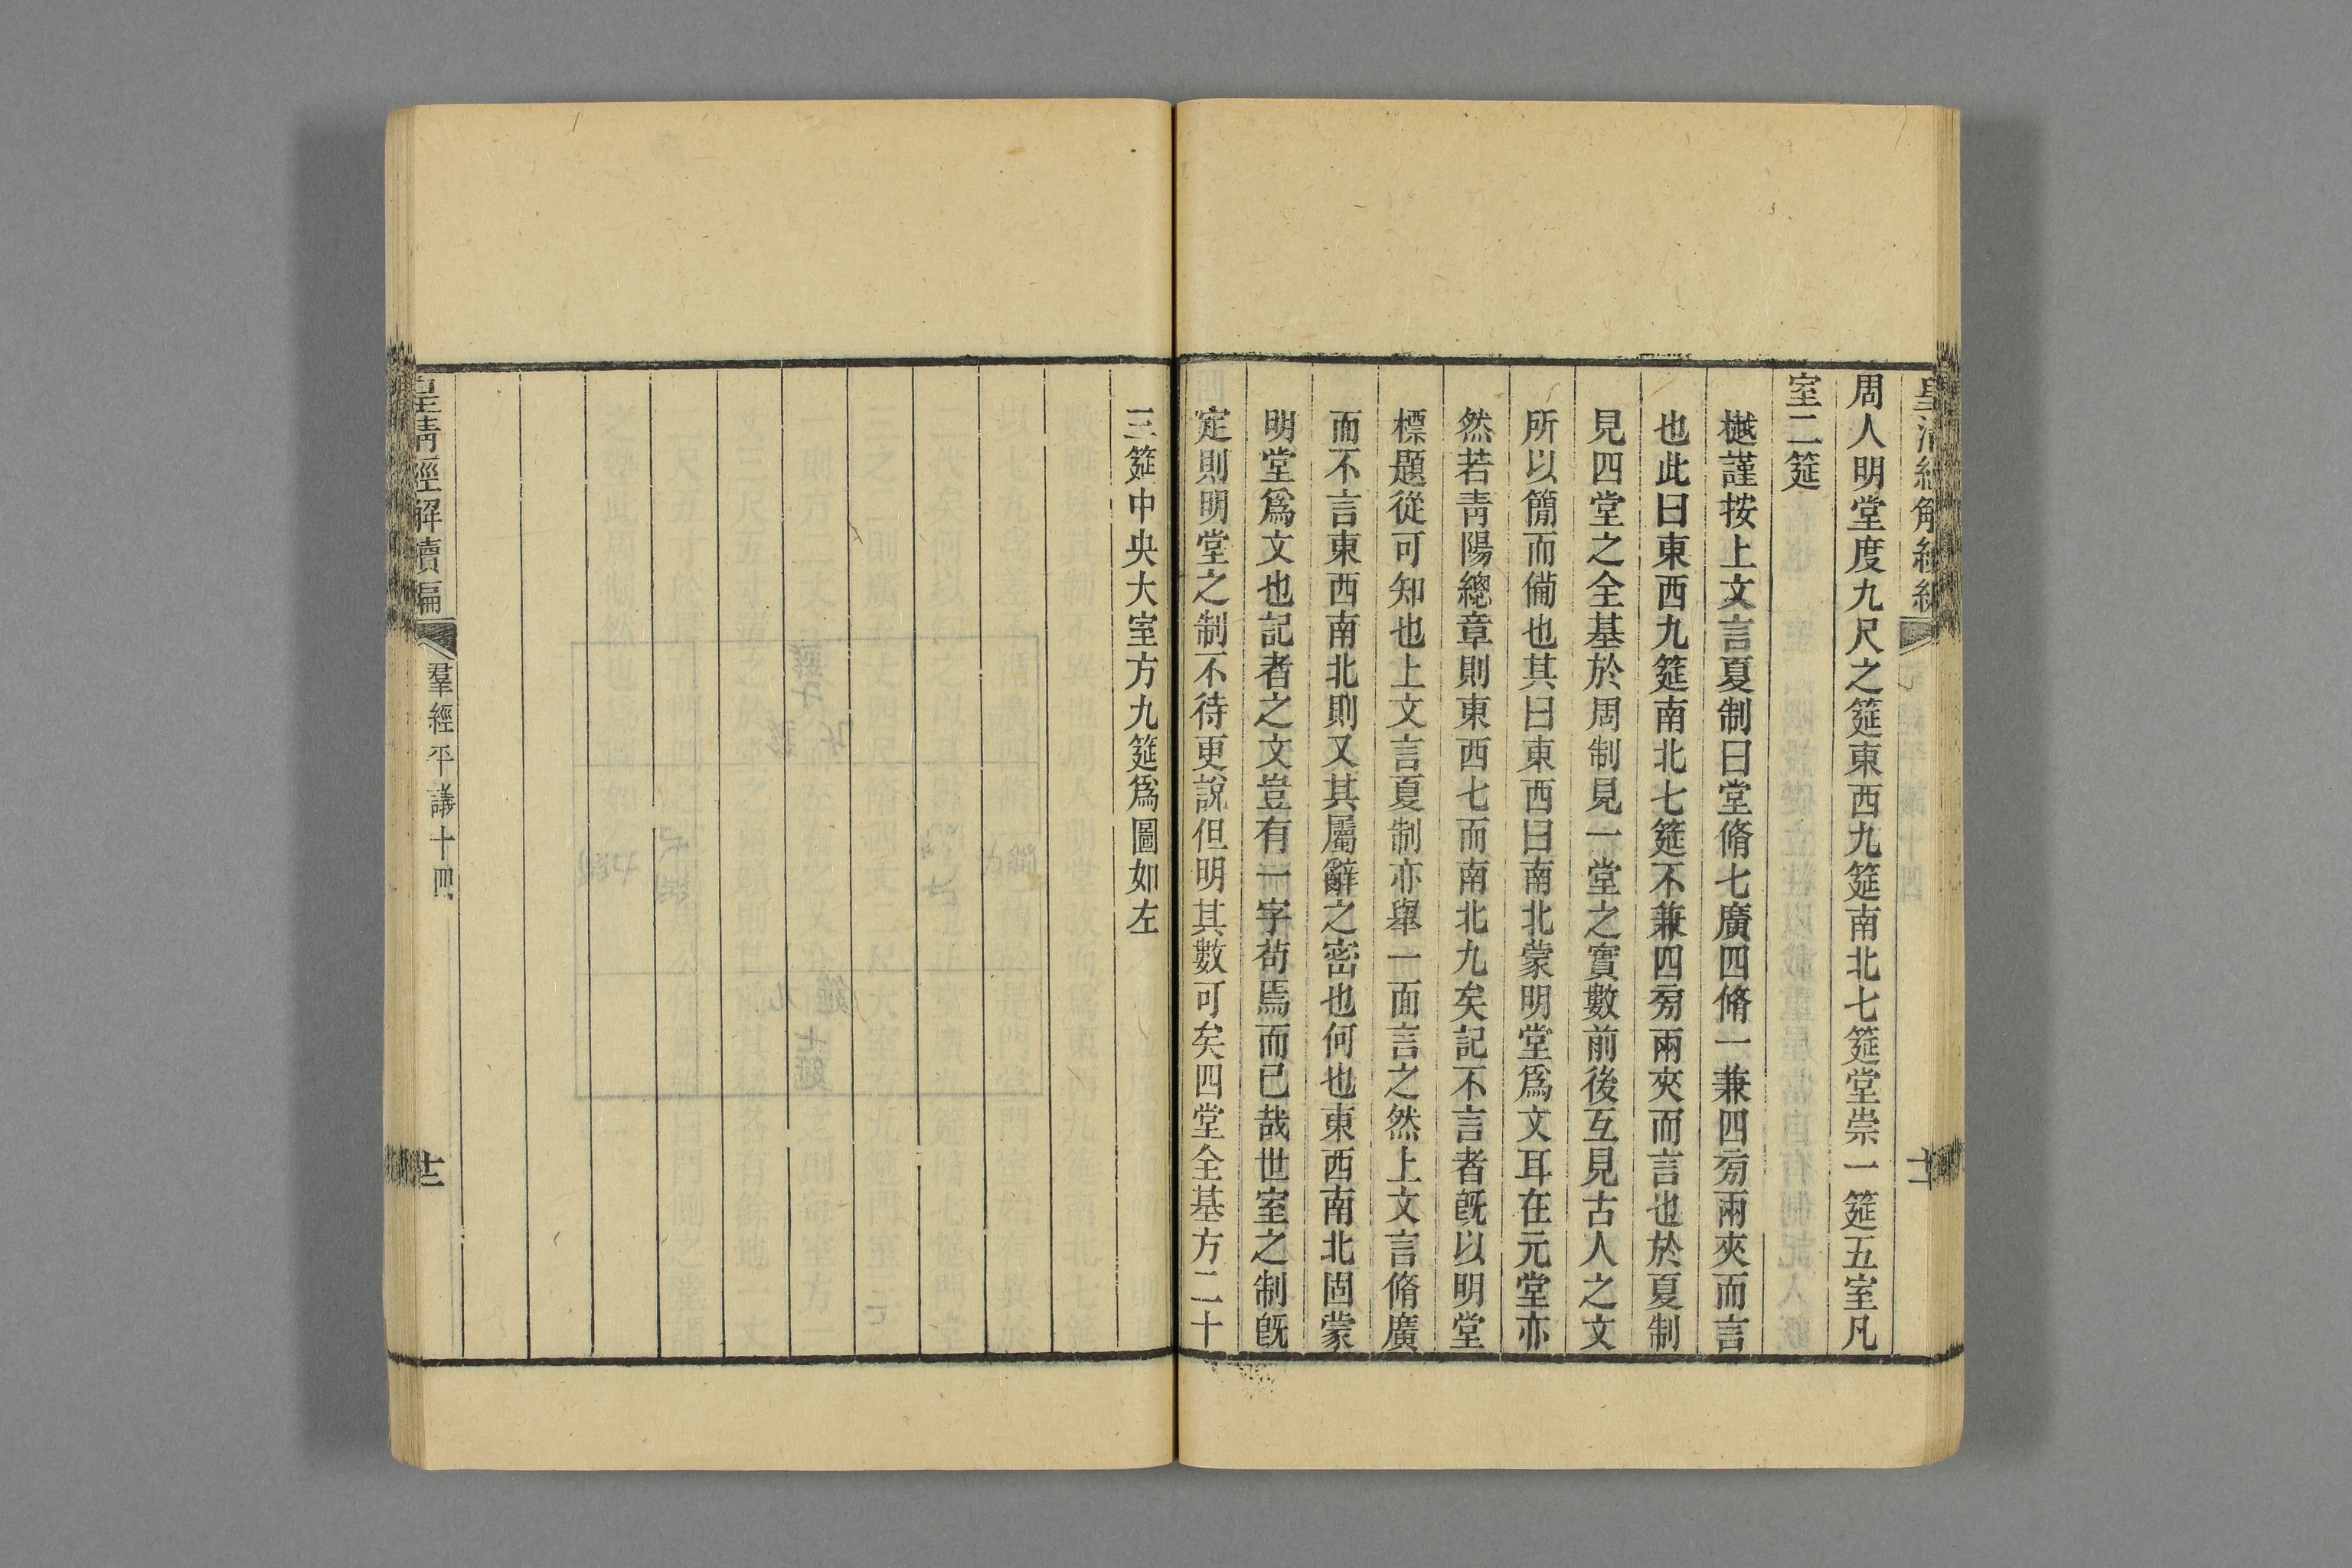 周人明堂度九尺之筵東西九筵南北七筵堂崇一筵五室凡
室二筵
樾謹按上文言夏制曰堂脩七廣四脩一兼四旁兩夾而言
也此曰東西九筵南北七筵不兼四旁兩夾而言也於夏制
見四堂之全基於周制見一堂之實數前後互見古人之文
所以簡而備也其曰東西曰南北蒙明堂爲文耳在元堂亦
然若靑陽總章則東西七而南北九矣記不言者旣以明堂
標題從可知也上文言夏制亦舉一面言之然上文言脩廣
而不言東西南北則又其屬辭之密也何也東西南北固蒙
明堂爲文也記者之文豈有一字苟焉而已哉世室之制旣
定則明堂之制不待更說但明其數可矣四堂全基方二十
三筵中央大室方九筵爲圖如左
皇清經解續編
羣經平議十四